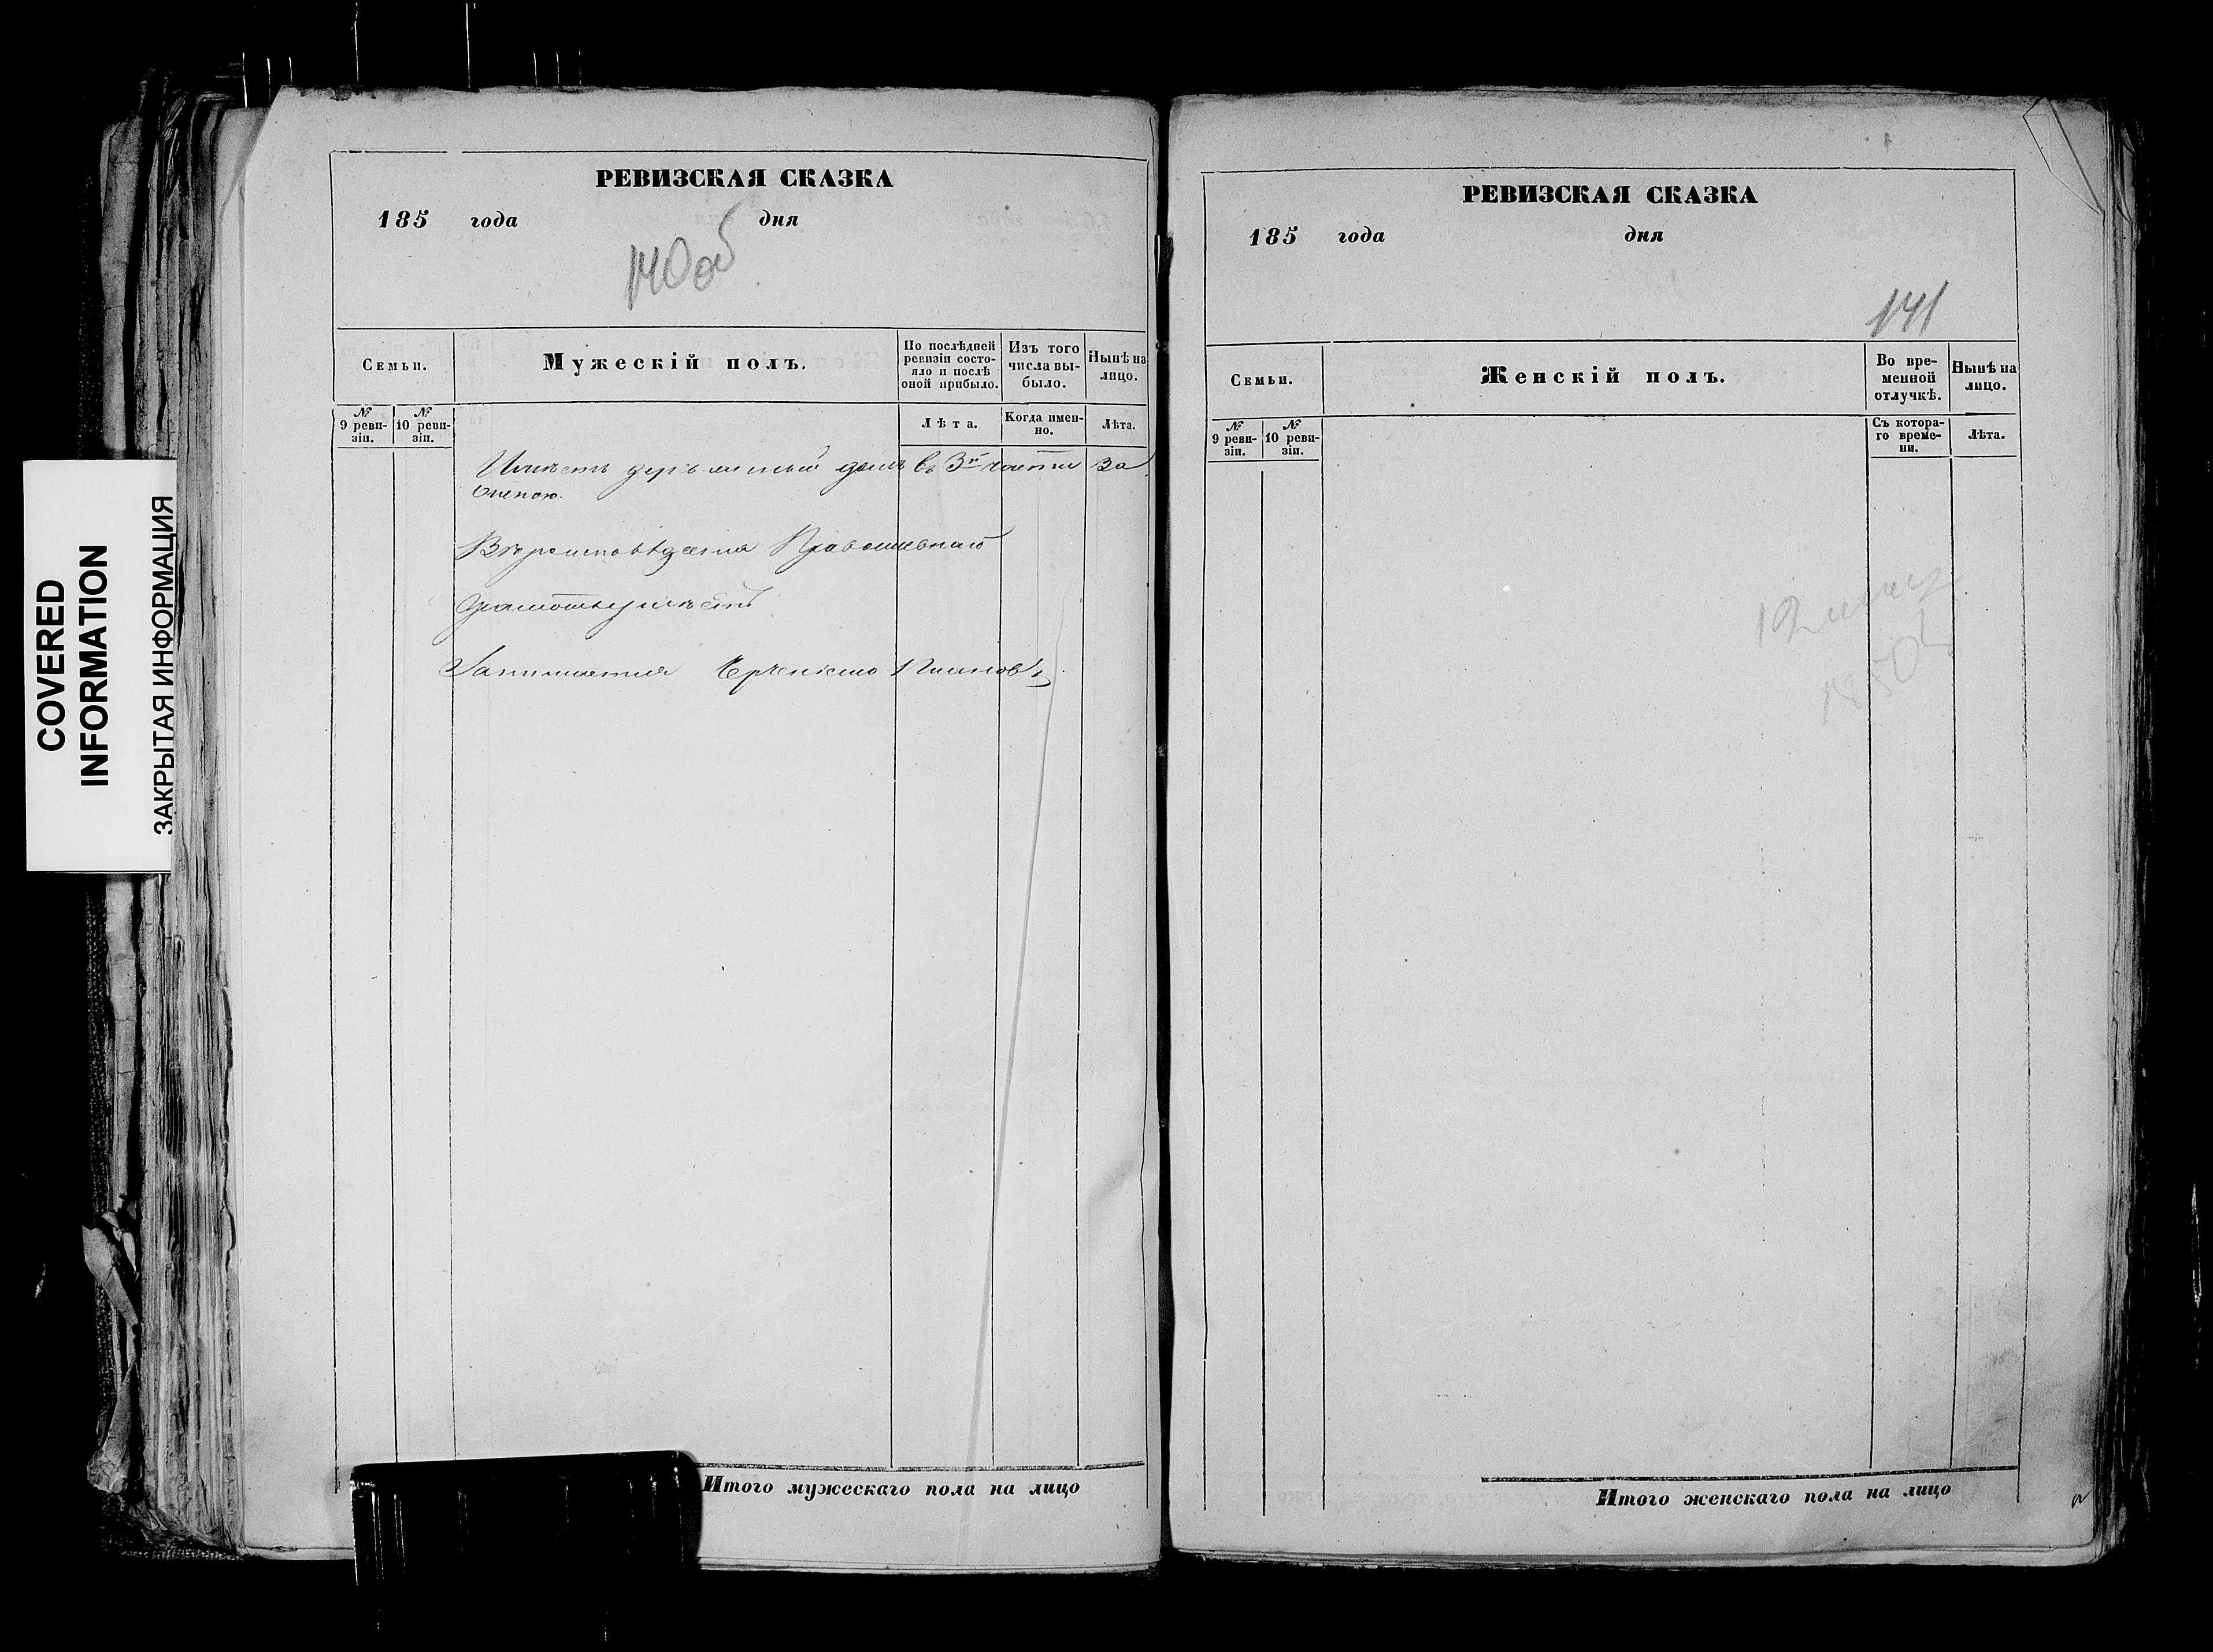 COVERED
INFORMATION
ЗАКРЫТАЯ ИНФОРМАЦИЯ
РЕВИЗСКАЯ СКАЗКА
185 года дня
140об
Семьи.
Мужескій полъ.
По послѣдней ревизіи состояло и послѣ оной прибыло.
Изъ того числа выбыло.
Нынѣ на лицо.
№ 9 ревизіи.
№ 10 ревизіи.
Лѣта.
Когда именно.
Лѣта.
Имѣетъ домъ въ 3й части за
Вѣроисповѣданія Православнаго
Грамотѣ умѣетъ
Занимается
Итого мужескаго пола на лицо
РЕВИЗСКАЯ СКАЗКА
185 года дня
141
Семьи.
Женскій полъ.
Во временной отлучкѣ.
Нынѣ на лицо.
№ 9 ревизіи.
№ 10 ревизіи.
Съ котораго времени.
Лѣта.
Итого женскаго пола на лицо